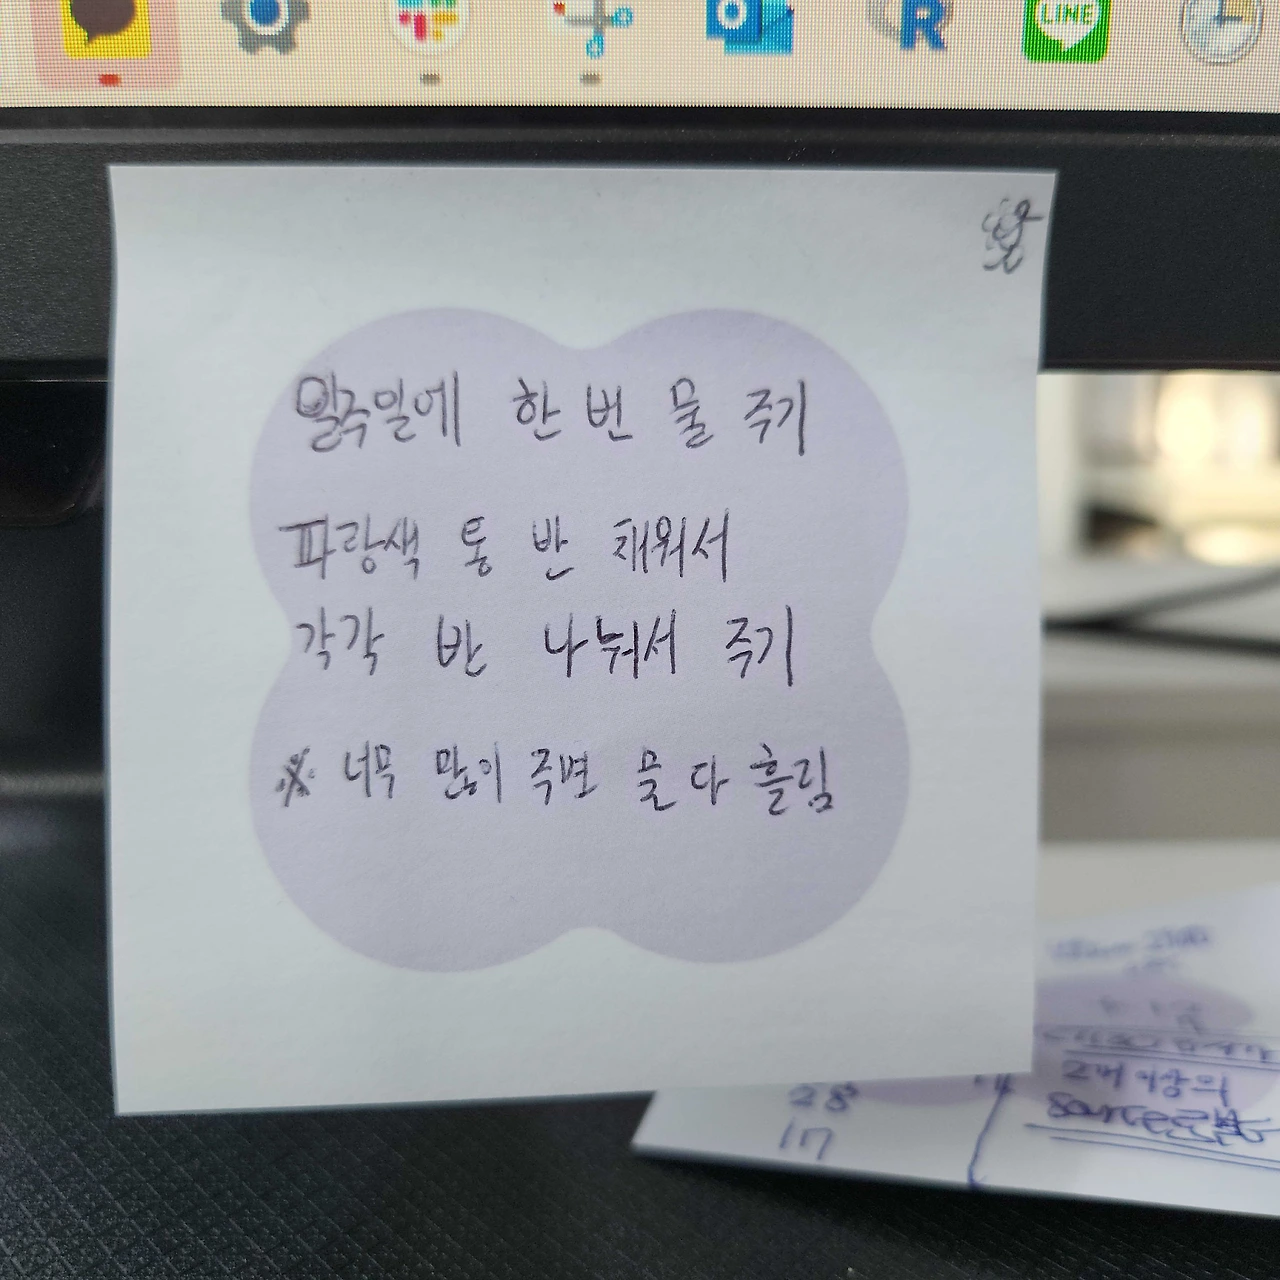 LINE
일주일에 한 번 물 주기
파랑색 통 반 채워서
각각 반 나눠서 주기
※ 너무 많이 주면 물 다 흘림
28
17
2개 이상의